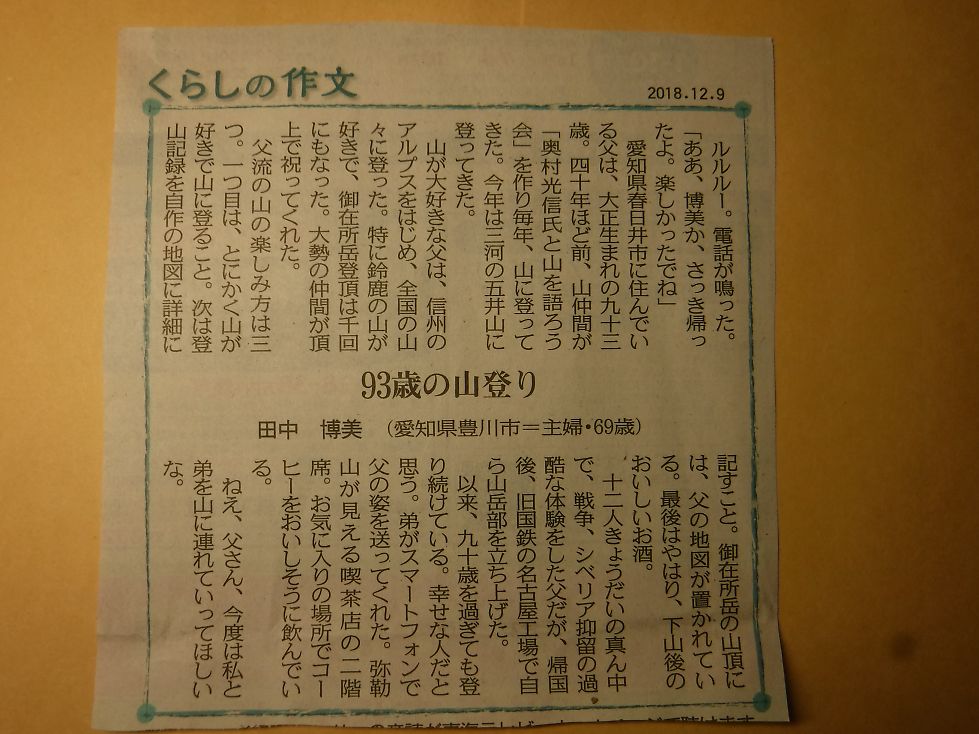 くらしの作文
2018.12.9
ルルルー。電話が鳴った。
「ああ、博美か、さっき帰っ
たよ。楽しかったでね」
愛知県春日井市に住んでい
る父は、大正生まれの九十三
歳。四十年ほど前、山仲間が
「奥村光信氏と山を語ろう
会」を作り毎年、山に登って
きた。今年は三河の五井山に
登ってきた。
山が大好きな父は、信州の
アルプスをはじめ、全国の山
々に登った。特に鈴鹿の山が
好きで、御在所岳登頂は千回
にもなった。大勢の仲間が頂
上で祝ってくれた。
父流の山の楽しみ方は三
つ。一つ目は、とにかく山が
好きで山に登ること。次は登
山記録を自作の地図に詳細に
93歳の山登り
田中 博美 (愛知県豊川市=主婦・69歳)
記すこと。御在所岳の山頂に
は、父の地図が置かれてい
る。最後はやはり、下山後の
おいしいお酒。
十二人きょうだいの真ん中
で、戦争、シベリア抑留の過
酷な体験をした父だが、帰国
後、旧国鉄の名古屋工場で自
ら山岳部を立ち上げた。
以来、九十歳を過ぎても登
り続けている。幸せな人だと
思う。弟がスマートフォンで
父の姿を送ってくれた。弥勒
山が見える喫茶店の二階
席。お気に入りの場所でコー
ヒーをおいしそうに飲んでい
る。
ねえ、父さん、今度は私と
弟を山に連れていってほしい
な。